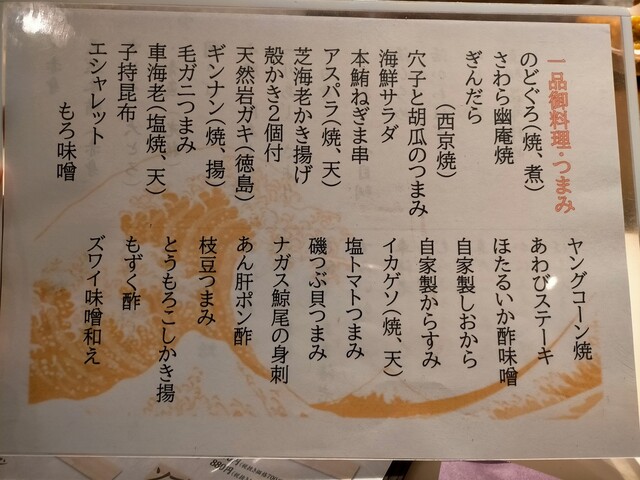 一品御料理・つまみ
のどぐろ(焼、煮)
さわら幽庵焼
ぎんだら
(西京焼)
穴子と胡瓜のつまみ
海鮮サラダ
本鮪ねぎま串
アスパラ(焼、天)
芝海老かき揚げ
殻かき2個付
天然岩ガキ(徳島)
ギンナン(焼、揚)
毛ガニつまみ
車海老(塩焼、天)
子持昆布
エシャレット
もろ味噌
ヤングコーン焼
あわびステーキ
ほたるいか酢味噌
自家製しおから
自家製からすみ
イカゲソ(焼、天)
塩トマトつまみ
磯つぶ貝つまみ
ナガス鯨尾の身刺
あん肝ポン酢
枝豆つまみ
とうもろこしかき揚
もずく酢
ズワイ味噌和え
880円